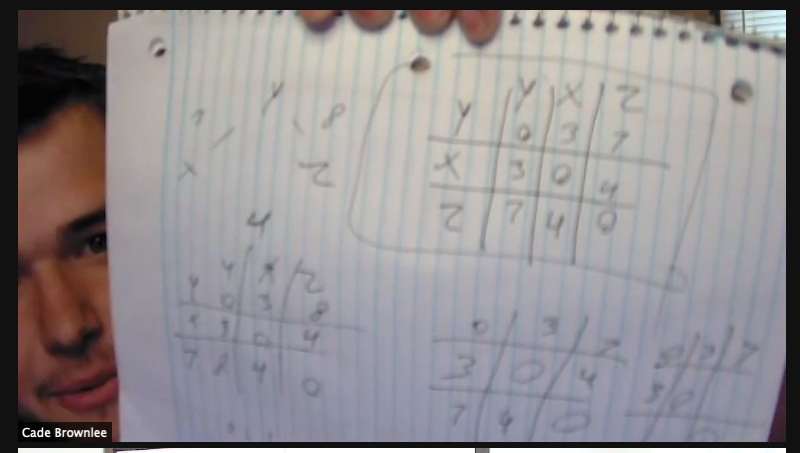 Y
8
X
Z
4
Y X Z
Y 0 3 7
X 3 0 4
Z 7 4 0
Y X Z
Y 0 3 8
X 3 0 4
Z 8 4 0
0 3 7
3 0 4
7 4 0
0 3 7
3 0
Cade Brownlee